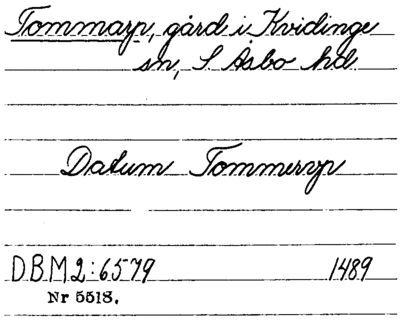 Tommarp, gård i Kvidinge
sn, S Åsbo hd
Datum Tommeryp
DBM 2:6579 1489
Nr 5518.